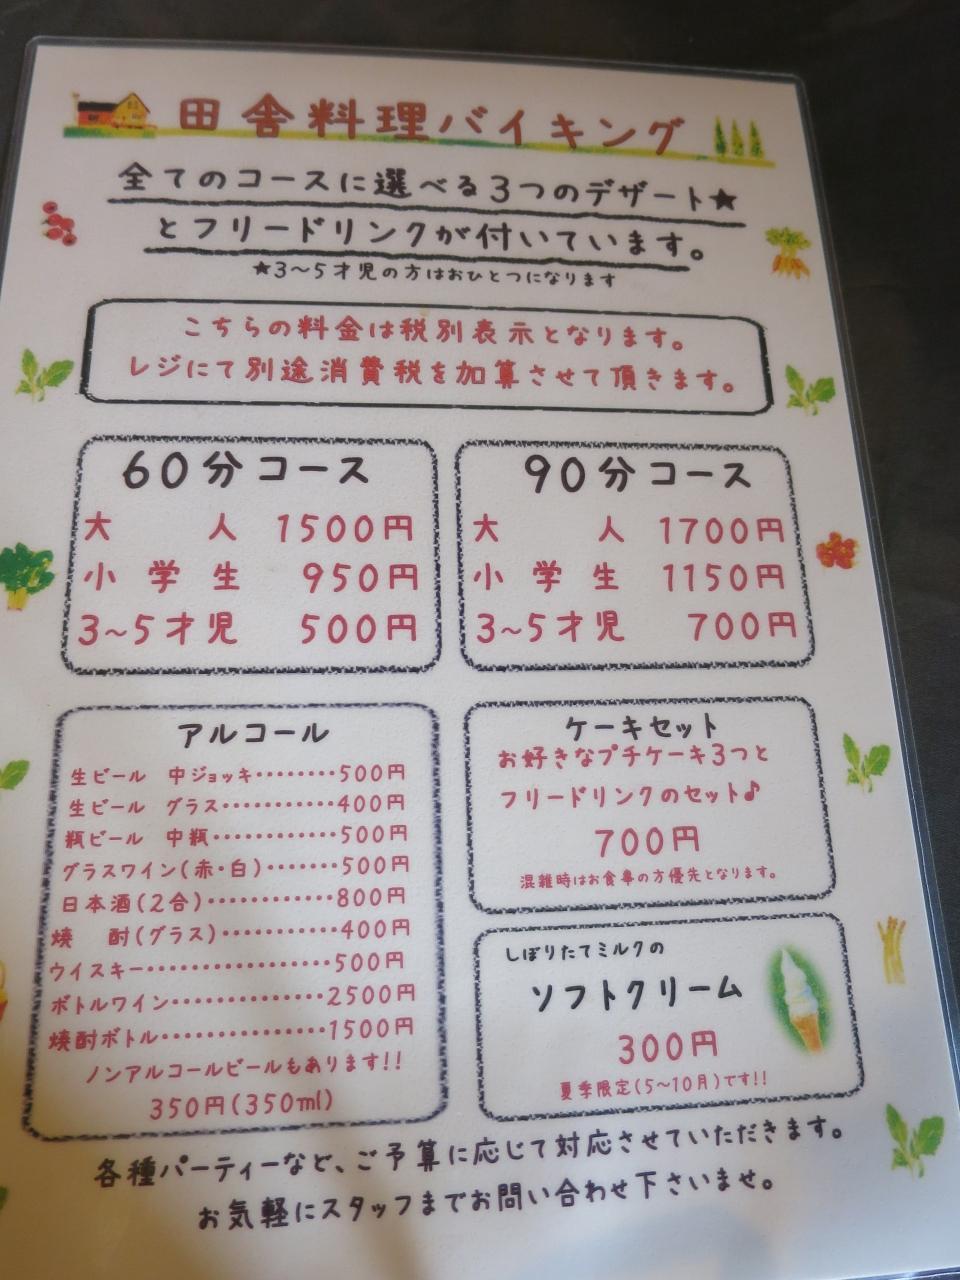 田舎料理バイキング
全てのコースに選べる3つのデザート★
とフリードリンクが付いています。
★3～5才児の方はおひとつになります
こちらの料金は税別表示となります。
レジにて別途消費税を加算させて頂きます。
60分コース
大人 1500円
小学生 950円
3~5才児 500円
90分コース
大人 1700円
小学生 1150円
3~5才児 700円
アルコール
生ビール 中ジョッキ････････500円
生ビール グラス･･･････････400円
瓶ビール 中瓶････････････500円
グラスワイン(赤･白)･･･････500円
日本酒(2合)････････････800円
焼酎(グラス)･･････････400円
ウイスキー･････････････････500円
ボトルワイン･･････････････2500円
焼酎ボトル･･･････････････1500円
ノンアルコールビールもあります!!
350円(350ml)
ケーキセット
お好きなプチケーキ3つと
フリードリンクのセット♪
700円
混雑時はお食事の方優先となります。
しぼりたてミルクの
ソフトクリーム
300円
夏季限定(5～10月)です!!
各種パーティーなど、ご予算に応じて対応させていただきます。
お気軽にスタッフまでお問い合わせ下さいませ。